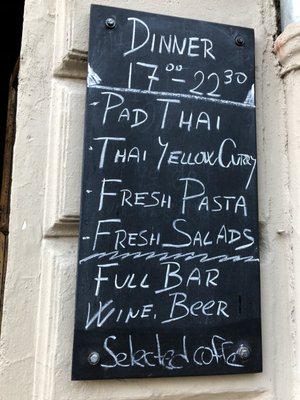 DINNER
1700 - 22 30
- PAD THAI
- THAI YELLOW CURRY
- FRESH PASTA
- FRESH SALADS
FULL BAR
WINE, BEER
Selected coffe